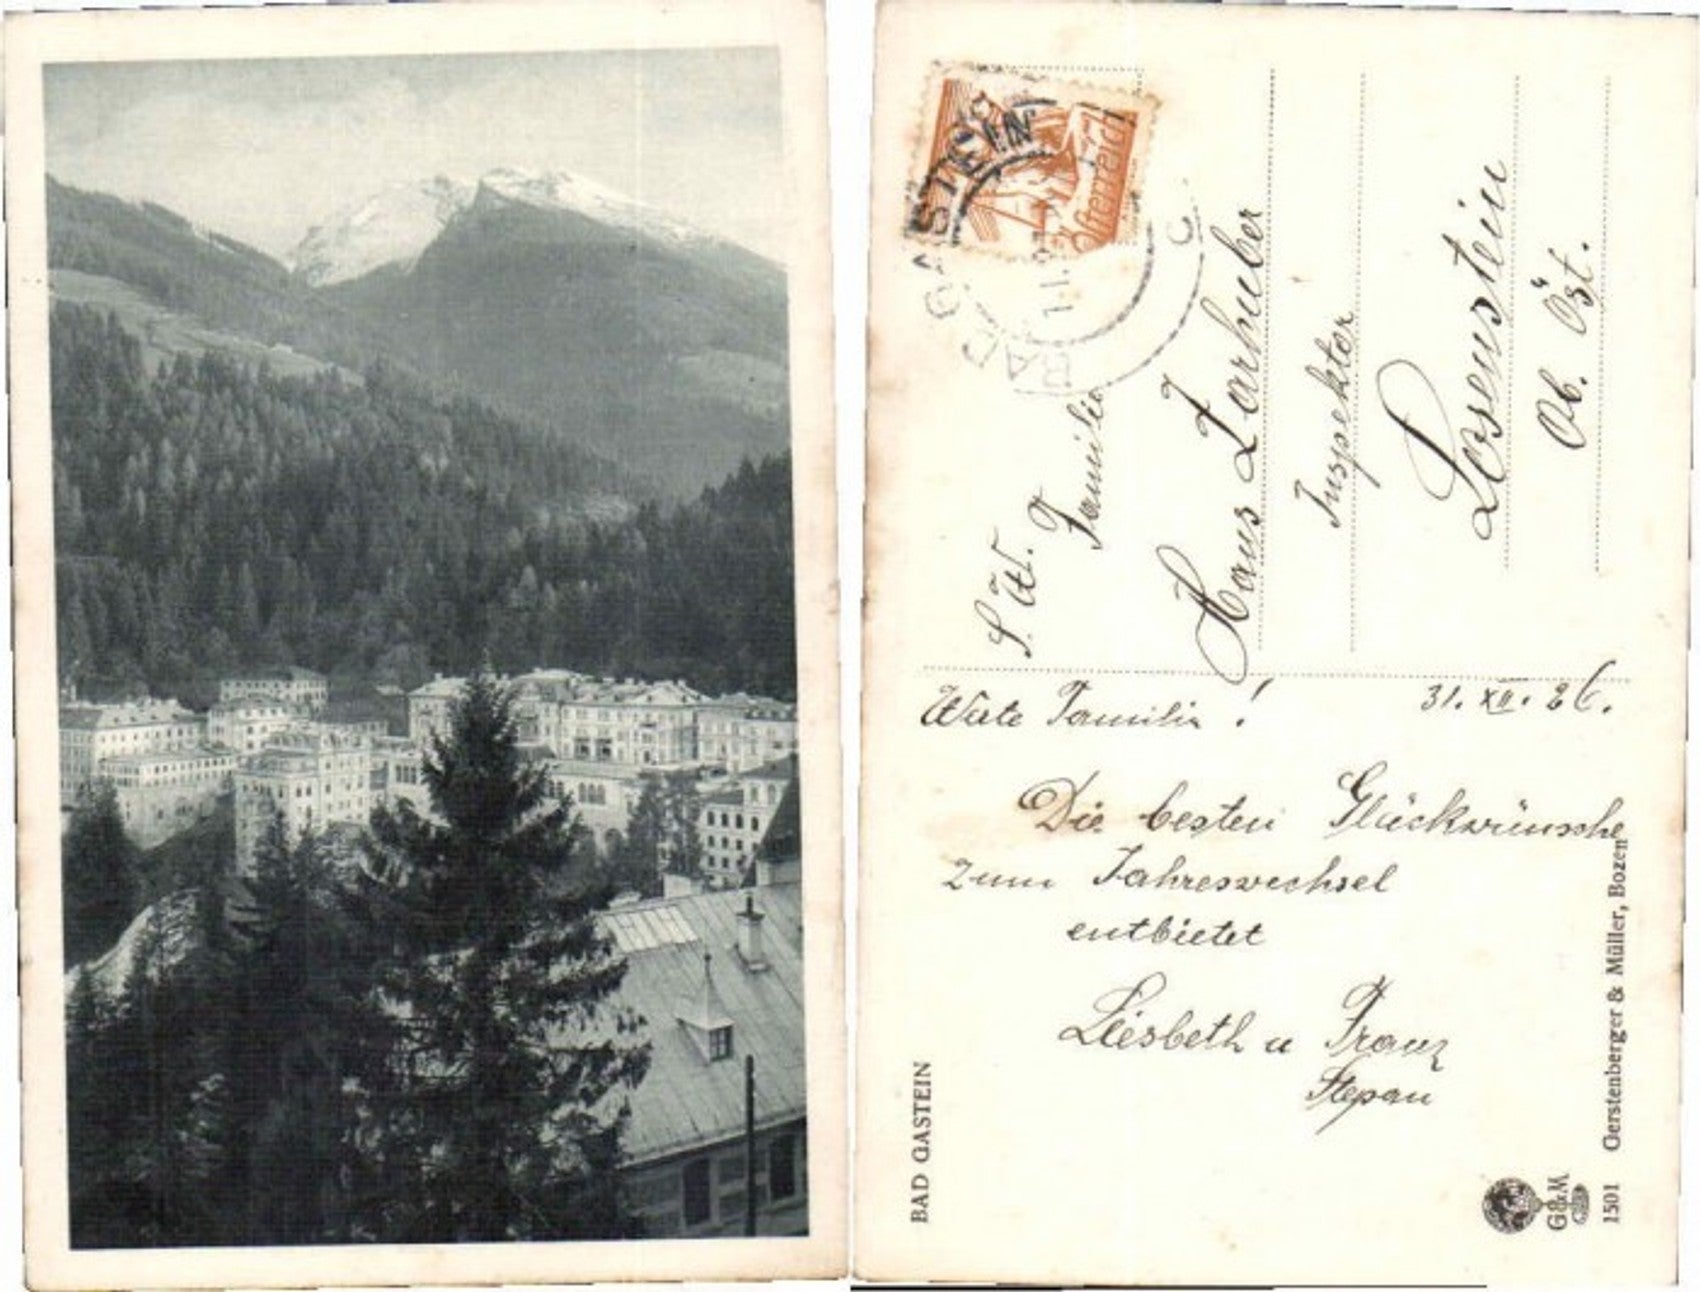 Österreich
BAD GASTEIN
S. W.
Familie
Hans Zarhuber
Inspektor
Losenstein
Ob. Öst.
31. XII. 26.
Werte Familie !
Die besten Glückwünsche
zum Jahreswechsel
entbietet
Liesbeth u Franz
Stepan
BAD GASTEIN
G&M
1501 Gerstenberger & Müller, Bozen